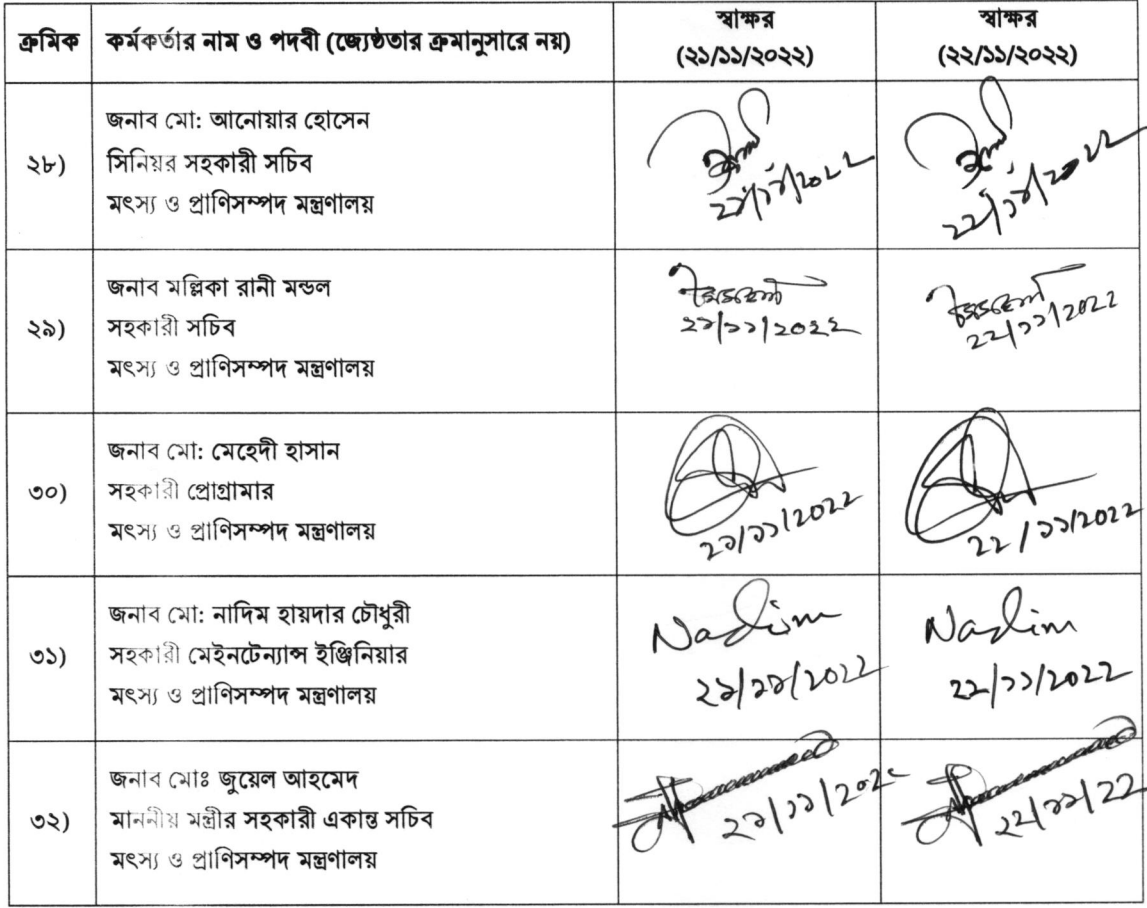 ক্রমিক
কর্মকর্তার নাম ও পদবী (জ্যেষ্ঠতার ক্রমানুসারে নয়)
স্বাক্ষর
(২১/১১/২০২২)
স্বাক্ষর
(২২/১১/২০২২)
২৮)
জনাব মো: আনোয়ার হোসেন
সিনিয়র সহকারী সচিব
মৎস্য ও প্রাণিসম্পদ মন্ত্রণালয়
২১/১১/২০২২
২২/১১/২০২২
২৯)
জনাব মল্লিকা রানী মন্ডল
সহকারী সচিব
মৎস্য ও প্রাণিসম্পদ মন্ত্রণালয়
২১/১১/২০২২
২২/১১/২০২২
৩০)
জনাব মো: মেহেদী হাসান
সহকারী প্রোগ্রামার
মৎস্য ও প্রাণিসম্পদ মন্ত্রণালয়
২১/১১/২০২২
২২/১১/২০২২
৩১)
জনাব মো: নাদিম হায়দার চৌধুরী
সহকারী মেইনটেন্যান্স ইঞ্জিনিয়ার
মৎস্য ও প্রাণিসম্পদ মন্ত্রণালয়
Nadim
২১/১১/২০২২
Nadim
২২/১১/২০২২
৩২)
জনাব মোঃ জুয়েল আহমেদ
মাননীয় মন্ত্রীর সহকারী একান্ত সচিব
মৎস্য ও প্রাণিসম্পদ মন্ত্রণালয়
২১/১১/২০২২
২২/১১/২২